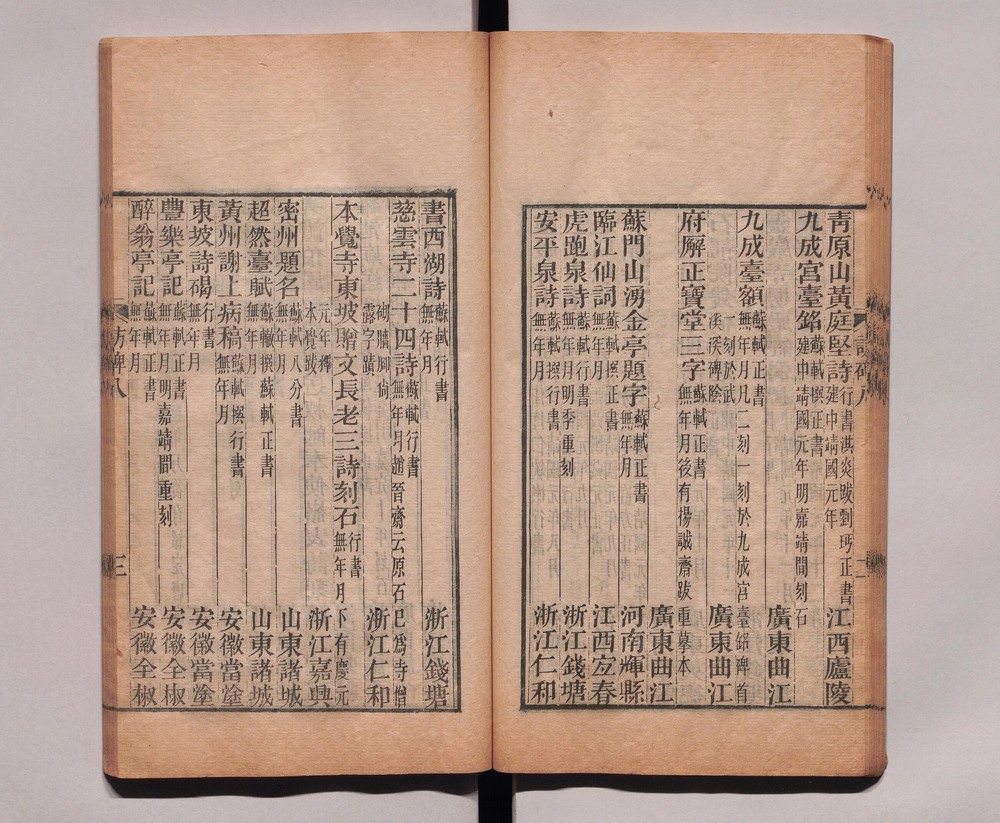 靑原山黃庭堅詩行書洪炎跋劉䢼正書建中靖國元年江西廬陵
九成宮臺銘蘇軾撰正書建中靖國元年明嘉靖間刻石
廣東曲江
九成臺額蘇軾正書無年月凡二刻一刻於九成宮臺銘碑首
一刻於武溪深碑陰廣東曲江
府解正寶堂三字蘇軾正書無年月後有揚誠齋跋重摹本
廣東曲江
蘇門山湧金亭題字蘇軾正書無年月河南輝縣
臨江仙詞蘇軾撰正書無年月江西宜春
虎跑泉詩蘇軾行書無年月明季重刻浙江錢塘
安平泉詩蘇軾撰行書無年月浙江仁和
書西湖詩蘇軾行書無年月浙江錢塘
慈雲寺二十四詩蘇軾行書無年月趙晉齋云原石已爲寺僧
砌牆脚尙露字蹟浙江仁和
本覺寺東坡贈文長老三詩刻石行書無年月下有慶元
元年釋本覺跋浙江嘉興
密州題名蘇軾八分書無年月山東諸城
超然臺賦蘇轍撰蘇軾正書無年月山東諸城
黃州謝上病稿蘇軾撰行書無年月安徽當塗
東坡詩碣行書無年月安徽當塗
豐樂亭記蘇軾正書無年月明嘉靖間重刻安徽全椒
醉翁亭記蘇軾正書無年月安徽全椒
訪碑八
三